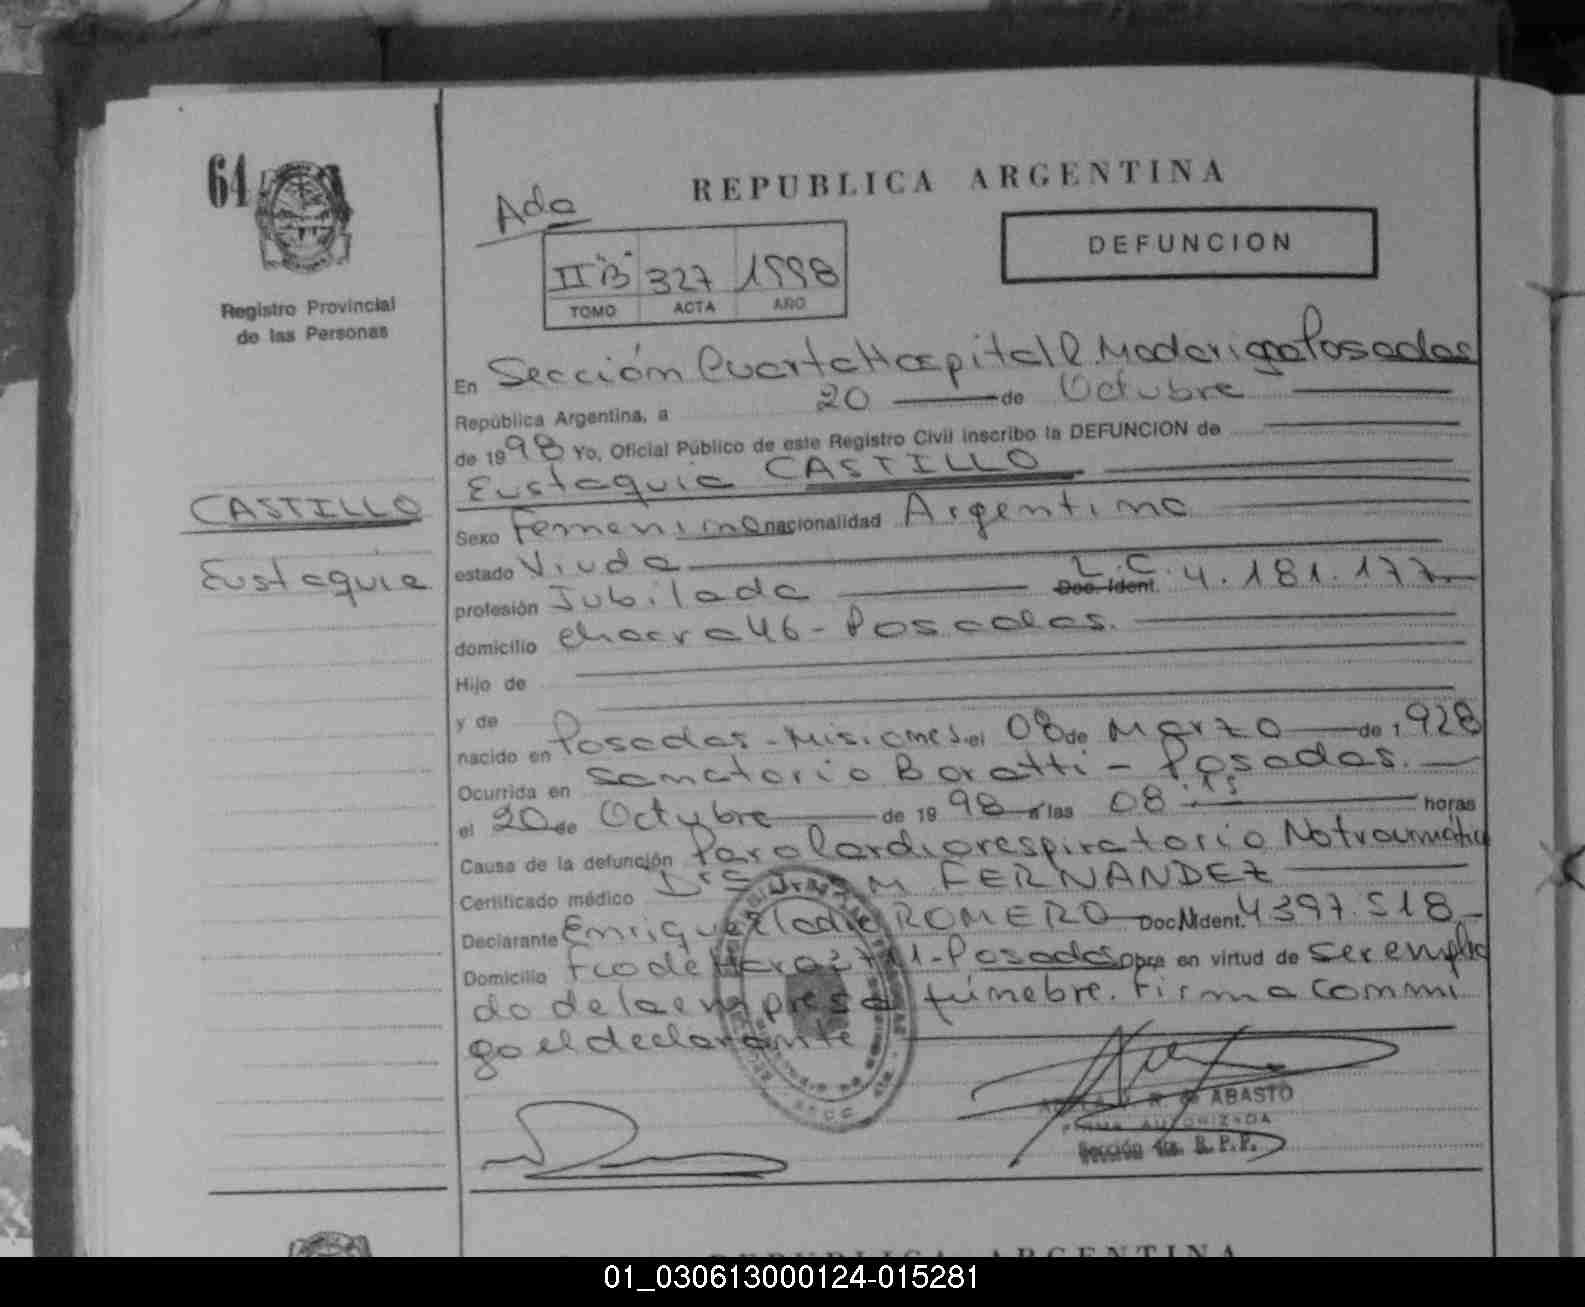 64
Registro Provincial
de las Personas
CASTILLO
Eustaquia
REPUBLICA ARGENTINA
Ada
DEFUNCION
II "B" 327 1998
TOMO ACTA AÑO
En Sección Cuarta Hospital R. Madariaga Posadas
República Argentina, a 20 de Octubre
de 1998 Yo, Oficial Público de este Registro Civil inscribo la DEFUNCION de
Eustaquia CASTILLO
Sexo Femenino nacionalidad Argentina
estado Viuda
profesión Jubilada L.C. Doc. Ident. 4.181.177
domicilio chacra 46 - Posadas.
Hijo de
y de
nacido en Posadas - Misiones el 08 de Marzo de 1928
Ocurrida en Sanatorio Boratti - Posadas.
el 20 de Octubre de 1998 a las 08:15 horas
Causa de la defunción Paro Cardiorespiratorio No traumático
Certificado médico M FERNANDEZ
Declarante Enrique Eladio ROMERO Doc. Ident. 4397.518
Domicilio Fco de Haro Posadas obra en virtud de ser emplea
do de la empresa fúnebre. Firma conmi
go el declarante
ABASTO
FIRMA AUTORIZADA
Sección 4ta. R.P.P.
REPUBLICA ARGENTINA
01_030613000124-015281